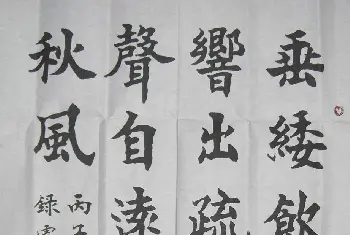 垂緌飲
響出疏
聲自遠
秋風
丙子
錄虞